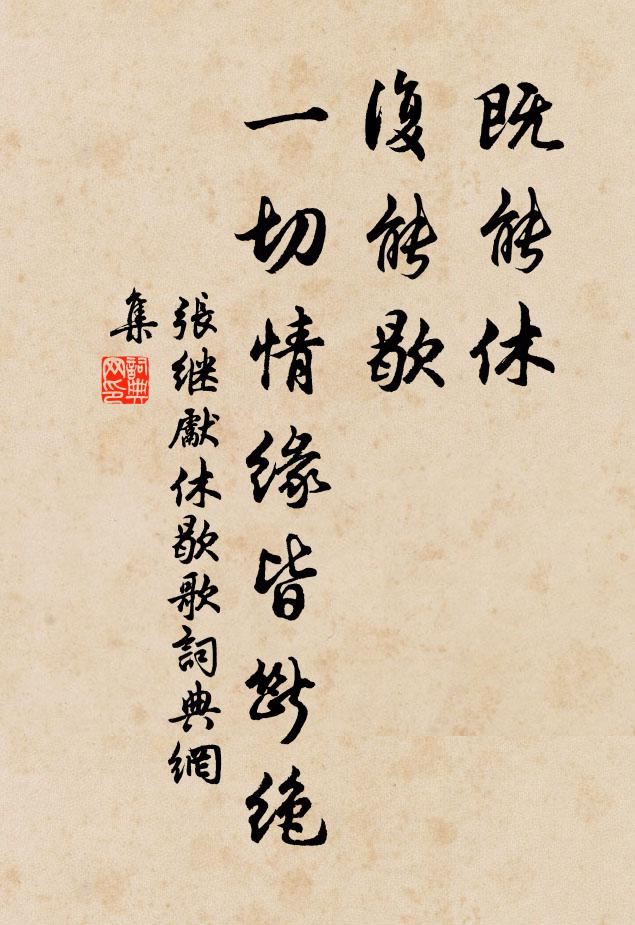 既能休
復能歇
一切情緣皆斷絕
張继獻休歇歌詞典網
集
詞典
网印